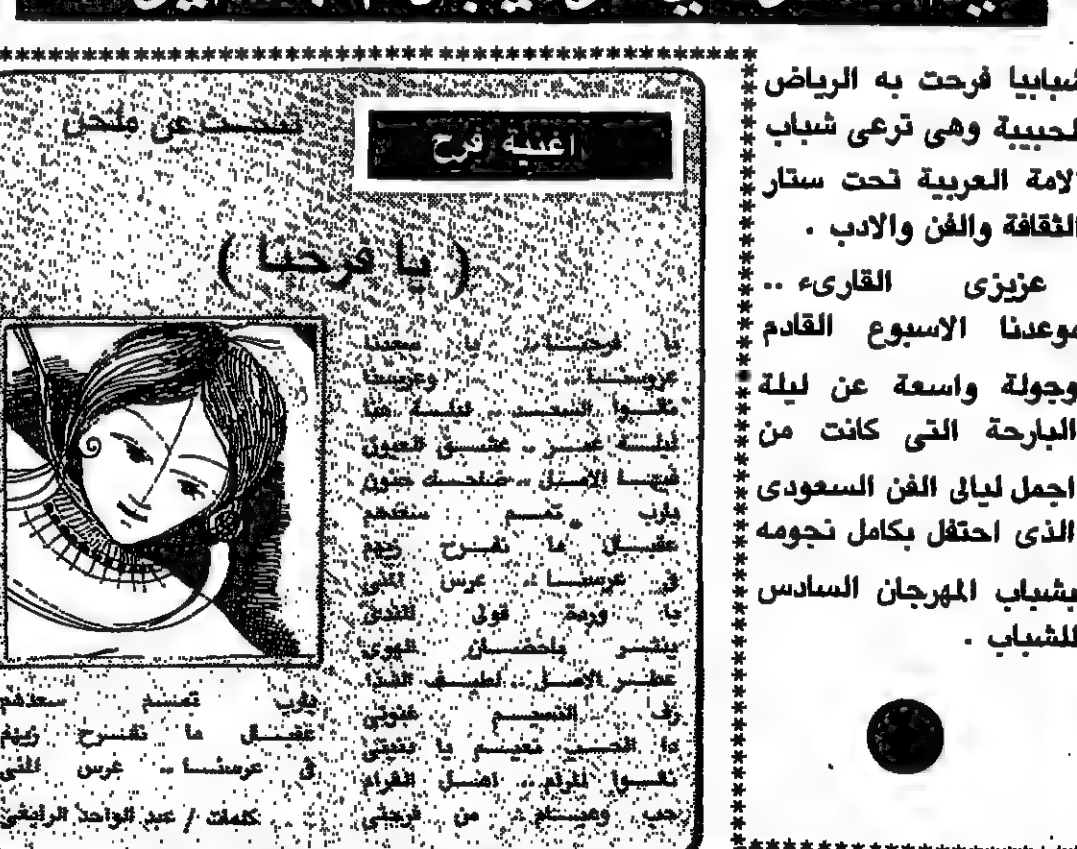 شبابيا فرحت به الرياض
لحبيبة وهى ترعى شباب
لامة العربية تحت ستار
الثقافة والفن والادب .
عزيزى القارىء ..
موعدنا الاسبوع القادم
وجولة واسعة عن ليلة
البارحة التى كانت من
اجمل ليالى الفن السعودى
الذى احتفل بكامل نجومه
بشباب المهرجان السادس
للشباب .
اغنية فرح
تبحث عن ملحن
( يا فرحنا )
يا فرحنا .. يا سعدنا
عروسنا .. وعريسنا
السعد .. ليلة هنا
ليلة عمر .. عشق العيون
فيها الامل .. ضاحك حنون
يارب تمم سعدهم
عقبال ما نفرح زيهم
فى عرسنا .. عرس المنى
يا وردة قولى للندى
ينثر باحضان الهوى
عطر الاصل .. لطيف الشذا
النسيم
دا الحب
اهل الغرام
من فرحتى
يارب تمم سعدهم
عقبال ما نفرح زيهم
فى عرسنا .. عرس المنى
كلمات / عبد الواحد الرابغى